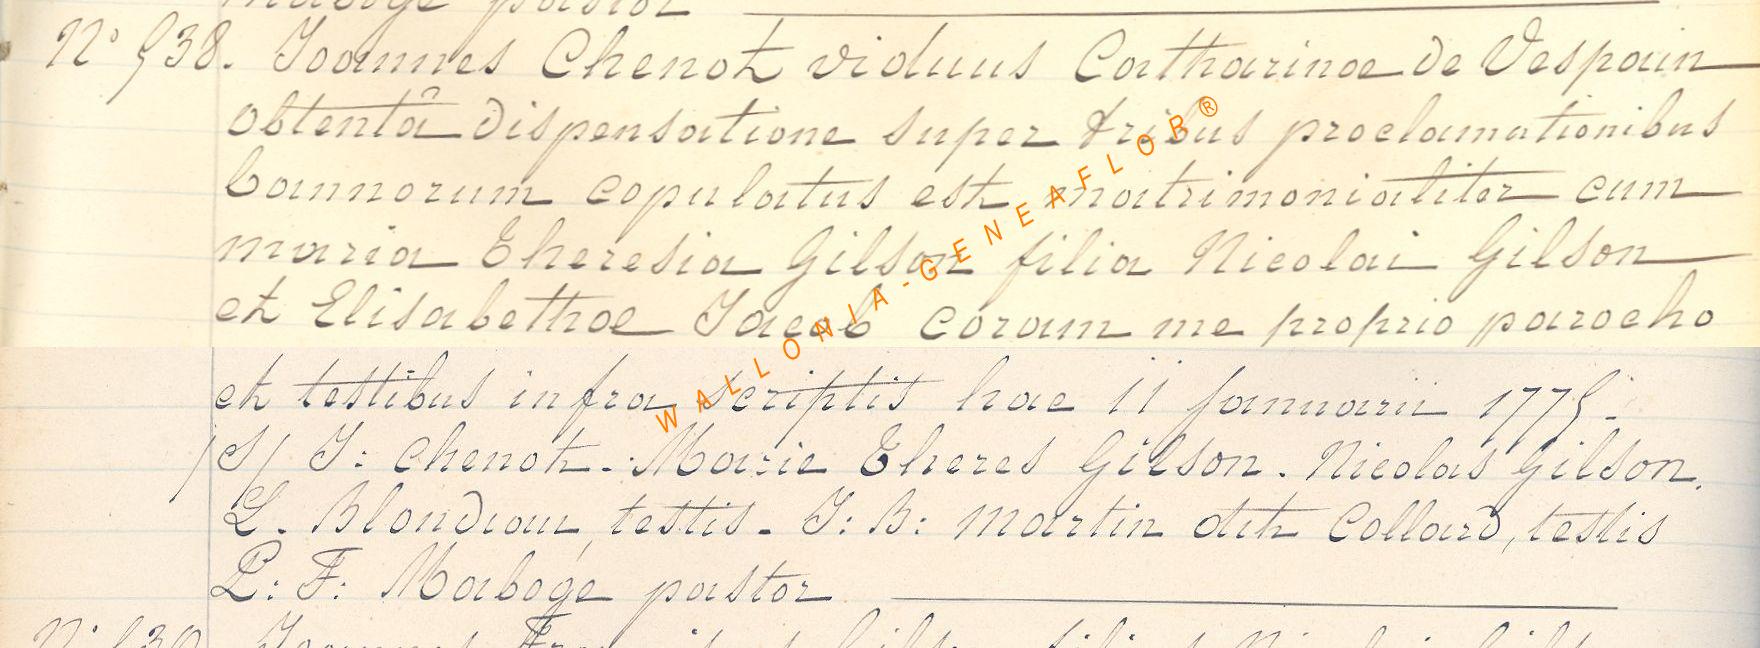 Maboge pastor
N° 538. Joannes Chenot viduus Catharinae de Vespain
obtentâ dispensatione super tribus proclamationibus
bannorum copulatus est matrimonialiter cum
maria Theresia Gilson filia Nicolai Gilson
et Elisabethae Jacob coram me proprio parocho
et testibus infra scriptis hac 11 Januarii 1775.
/S/ J: Chenot. Marie Theres Gilson. Nicolas Gilson.
L. Blondiau, testis. J: B: Martin dit Collard, testis
L: F: Maboge pastor
N° 539
WALLONIA-GENEAFLOR®